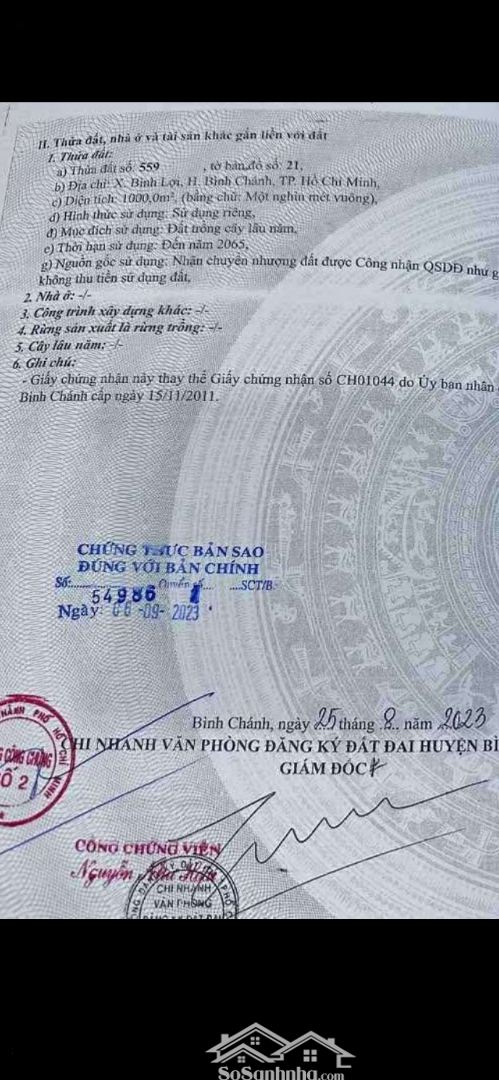 II. Thửa đất, nhà ở và tài sản khác gắn liền với đất
1. Thửa đất:
a) Thửa đất số: 559 , tờ bản đồ số: 21,
b) Địa chỉ: X. Bình Lợi, H. Bình Chánh, TP. Hồ Chí Minh,
c) Diện tích: 1000,0m², (bằng chữ: Một nghìn mét vuông),
d) Hình thức sử dụng: Sử dụng riêng,
đ) Mục đích sử dụng: Đất trồng cây lâu năm,
e) Thời hạn sử dụng: Đến năm 2065,
g) Nguồn gốc sử dụng: Nhận chuyển nhượng đất được Công nhận QSDĐ như g
không thu tiền sử dụng đất,
2. Nhà ở: -/-
3. Công trình xây dựng khác: -/-
4. Rừng sản xuất là rừng trồng: -/-
5. Cây lâu năm: -/-
6. Ghi chú:
- Giấy chứng nhận này thay thế Giấy chứng nhận số CH01044 do Ủy ban nhân
Bình Chánh cấp ngày 15/11/2011.
CHỨNG THỰC BẢN SAO
ĐÚNG VỚI BẢN CHÍNH
Số: 54986 Quyển số 1 SCT/B
Ngày: 06-09-2023
Bình Chánh, ngày 25 tháng 8 năm 2023
CHI NHÁNH VĂN PHÒNG ĐĂNG KÝ ĐẤT ĐAI HUYỆN BÌ
GIÁM ĐỐC
THÀNH PHỐ HỒ CHÍ MINH
CÔNG CHỨNG
SỐ 2
CÔNG CHỨNG VIÊN
Nguyễn
CHI NHÁNH
VĂN PHÒNG
ĐĂNG KÝ ĐẤT ĐAI
SoSanhnha.com